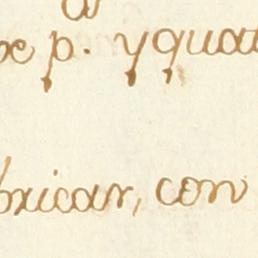 p. y quat
bricar, con